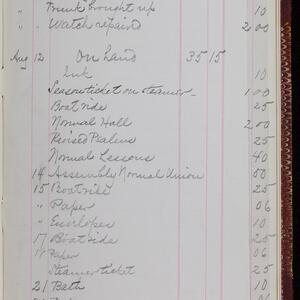 " Trunk brought up 10
" Watch repaired 2 00
Aug 12 On hand 35 15
Ink 10
Season ticket on steamer 1 00
Boat ride 25
Normal Hall 2 00
Revised Psalms 25
Normal Lessons 40
14 Assembly Normal Union 50
15 Boat ride 25
" Paper 06
" Envelopes 10
17 Boat ride 25
18 Paper 06
Steamer ticket 25
21 Bath 10